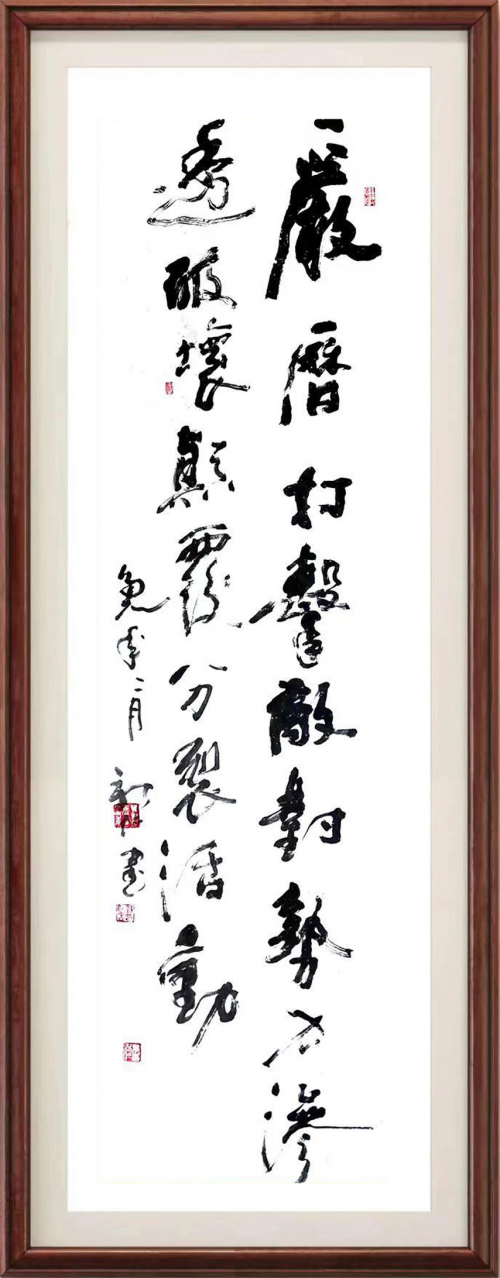 嚴曆打擊敵對勢力滲
透破壞顛覆分裂活動
兔年二月
新 書